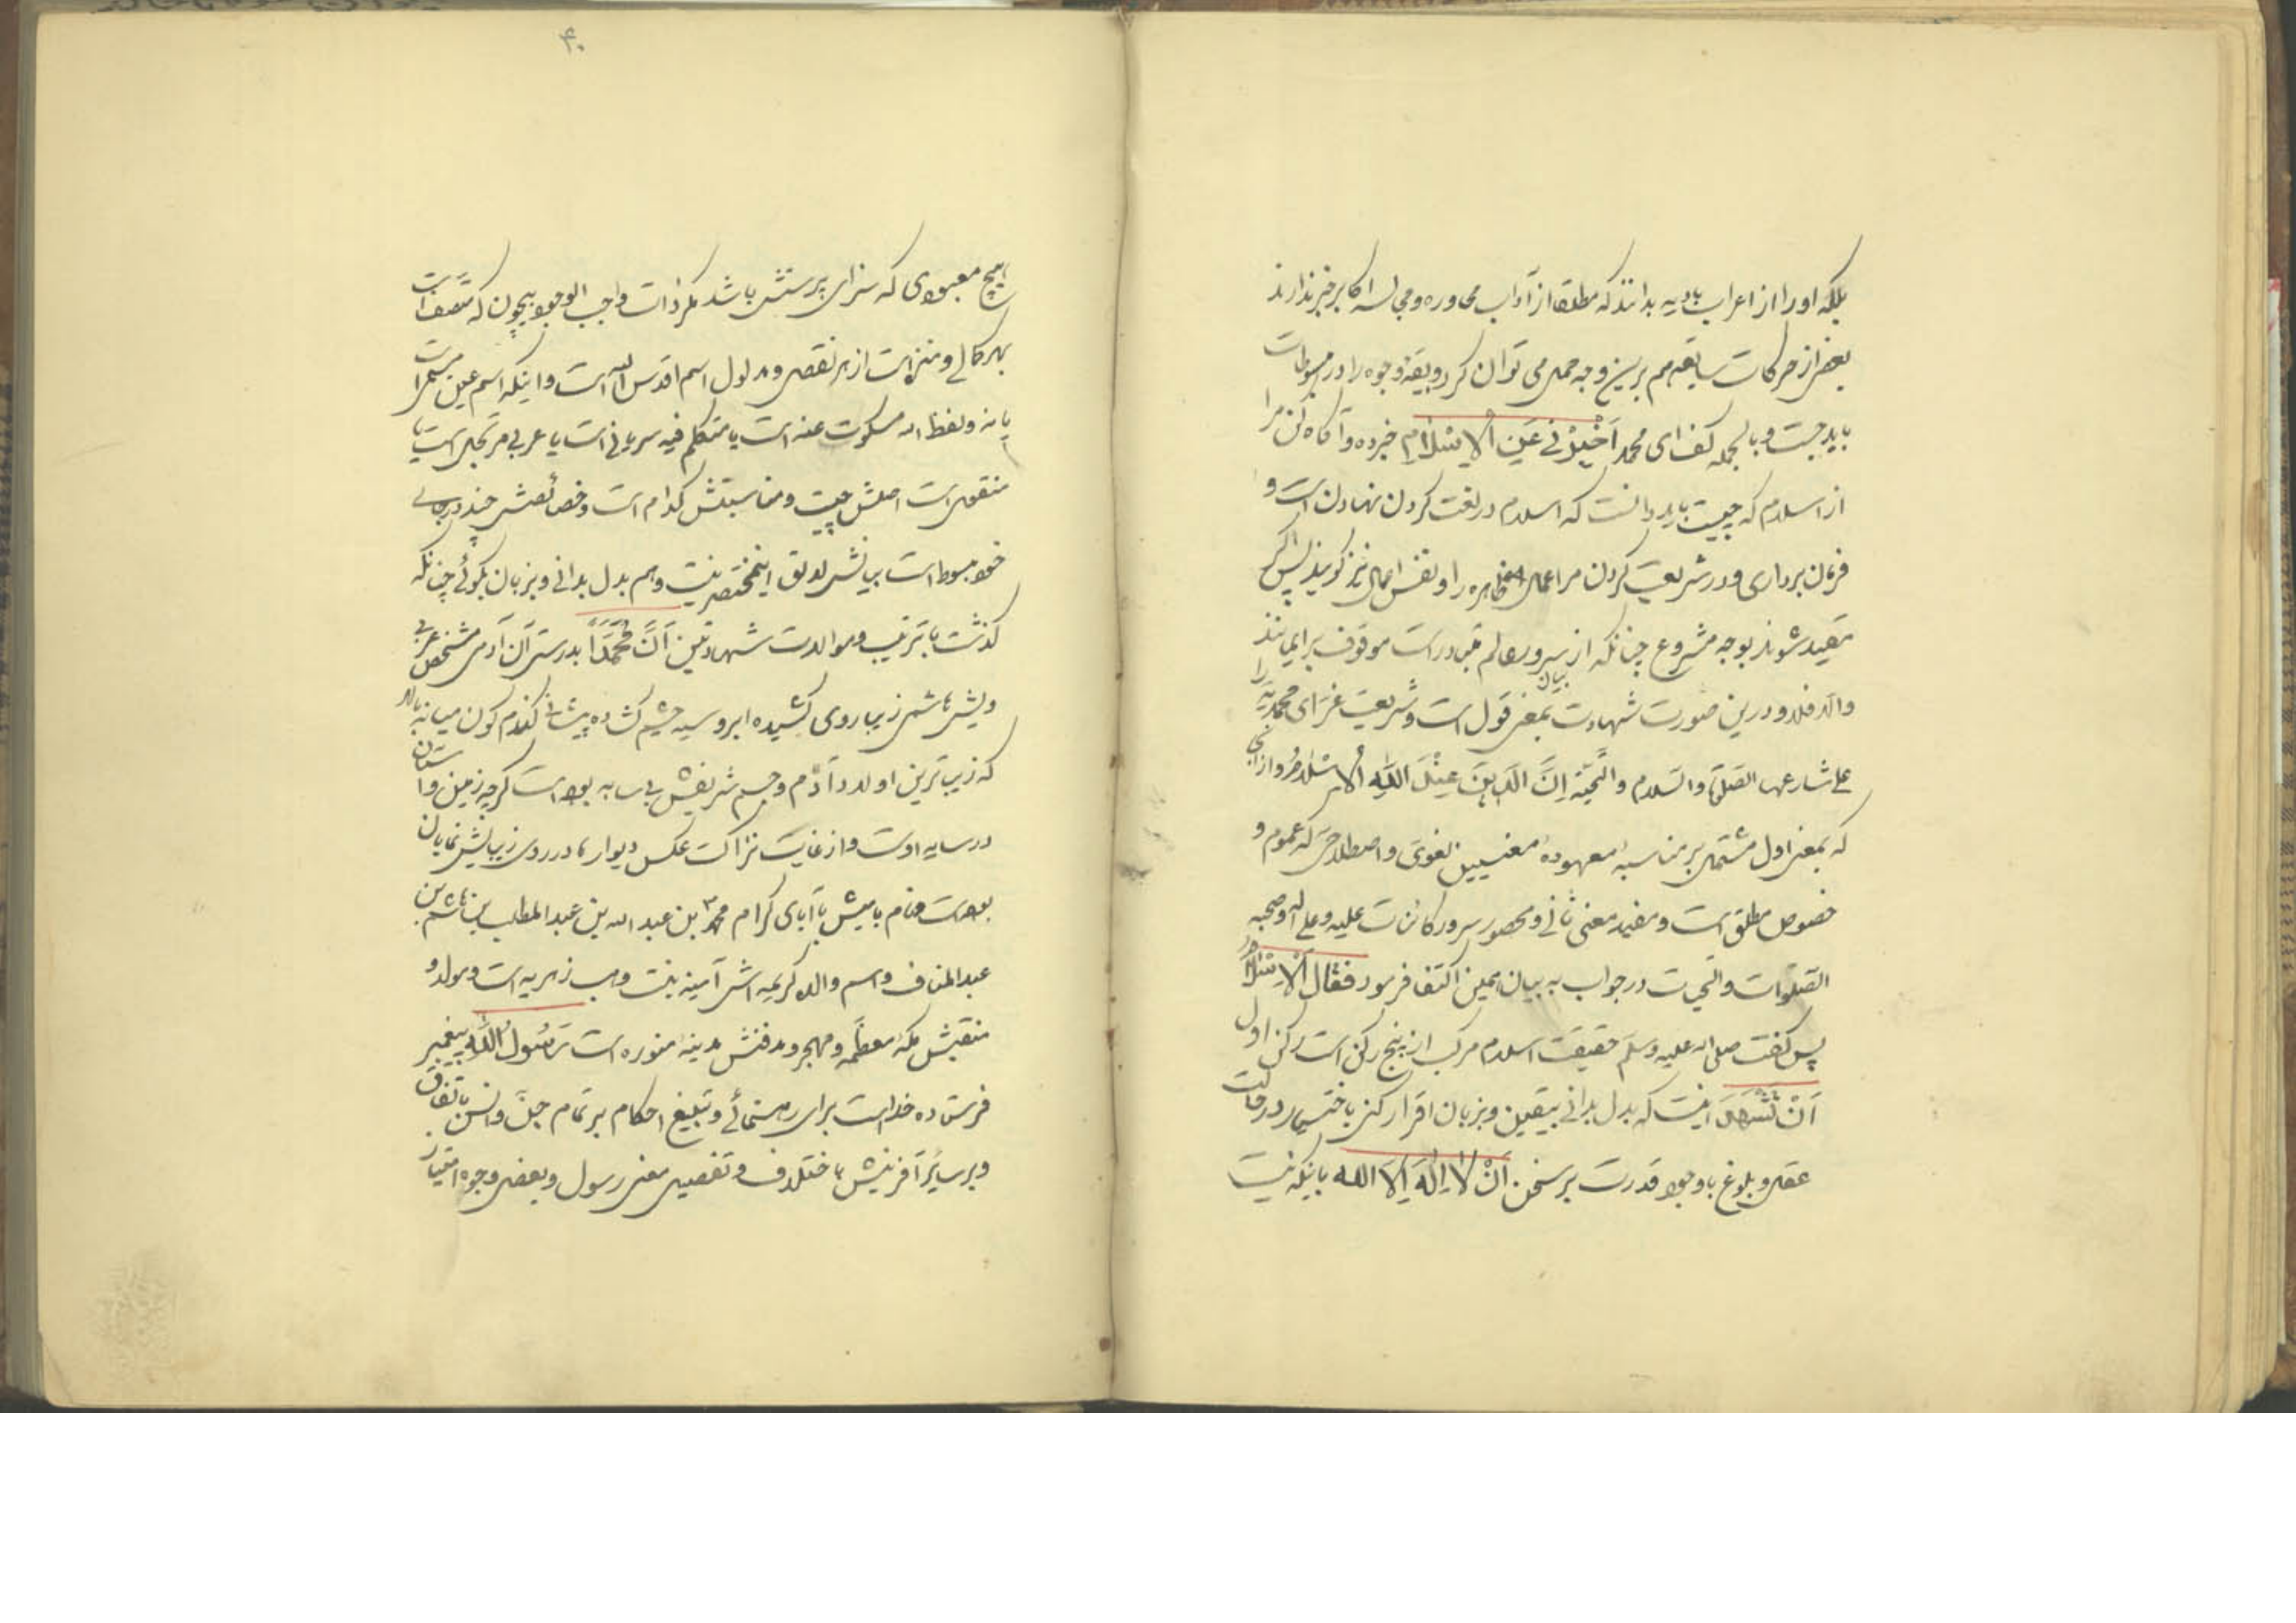 بلکه او را از اعراب بادیه بدانند که مطلقا از آداب محاوره و مجالسه اکابر خبر ندارند
بعضی از حرکات سابقه هم برین وجه حمل می توان کرد و بقیه وجوه را در مبسوطات
باید جست و بالجمله گفت ای محمد اَخْبِرْنی عَنِ الْاِسْلَامِ خبر ده و آگاه کن مرا
از اسلام که چیست باید دانست که اسلام در لغت گردن نهادن است و
فرمان برداری و در شریعت کردن مر اعمال ظاهره را و نفس اعمال نیز گویند پس اگر
مقید شوند بوجه مشروع چنانکه از سرور عالم متبادر است موقوف بر ایمانند
والا فلا و درین صورت شهادت بمعنی قول است و بیان شریعت غرای محمدیه را
علی شارعها الصلوة والسلام والتحیة اِنَّ الدّینَ عِنْدَ اللهِ الْاِسْلَامُ و از آنجا
که بمعنی اول مشتمل بر مناسبه معهوده معنیین لغوی و اصطلاحی که عموم و
خصوص مطلق است و مفید معنی ثانی و محصور سرور کائنات علیه و علی اله و صحبه
الصلوات والتحیات در جواب به بیان همین اکتفا فرمود فقال اَلْاِسْلَامُ
پس گفت صلی الله علیه وسلم حقیقت اسلام مرکب از پنج رکن است رکن اول
اَنْ تَشْهَدَ اینست که بدل بدانی بیقین و بزبان اقرار کنی باختیار در حالت
عقل و بلوغ باوجود قدرت بر سخن اَنْ لَا اِلٰهَ اِلَّا الله باینکه نیست
۴۰
هیچ معبودی که سزای پرستش باشد مگر ذات واجب الوجود بیچون که متصف است
بهر کمالی و منزه است از هر نقص و مدلول اسم اقدس الله است و اینکه اسم عین مسمی است
یا نه و لفظ الله مسکوت عنه است یا متکلم فیه سریانی است یا عربی مرتجل است یا
منقول است اصلش چیست و مناسبتش کدام است و خصائصش چند در جای
خود مبسوط است بیانش لایق این مختصر نیست و هم بدل بدانی و بزبان بگوئی چنانکه
گذشت با ترتیب و موالات شهادتین اَنَّ مُحَمَّدًا بدرستی آن آدمی مشخص عربی
قریشی هاشمی زیبا روی کشیده ابرو سیه چشم گشاده پیشانی گندم گون میانه بالا
که زیباترین اولاد آدم و جسم شریفش بی سایه بوده است گرچه زمین و آسمان
در سایه اوست و از غایت نزاکت عکس دیوارها در روی زیبایش نمایان
بوده است نام نامیش با آبای کرام محمد بن عبد الله بن عبد المطلب بن هاشم بن
عبد المناف و اسم والده کریمه اش آمنه بنت وهب زهریه است و مولد و
مکه معظمه و مهجر و مدفنش مدینه منوره است رَسُولُ اللهِ پیغمبر
فرستاده خداست برای رهنمائی و تبلیغ احکام بر تمام جن و انس باتفاق
و بر سایر آفرینش باختلاف و تفصیل معنی رسول و بعضی وجوه امتیاز